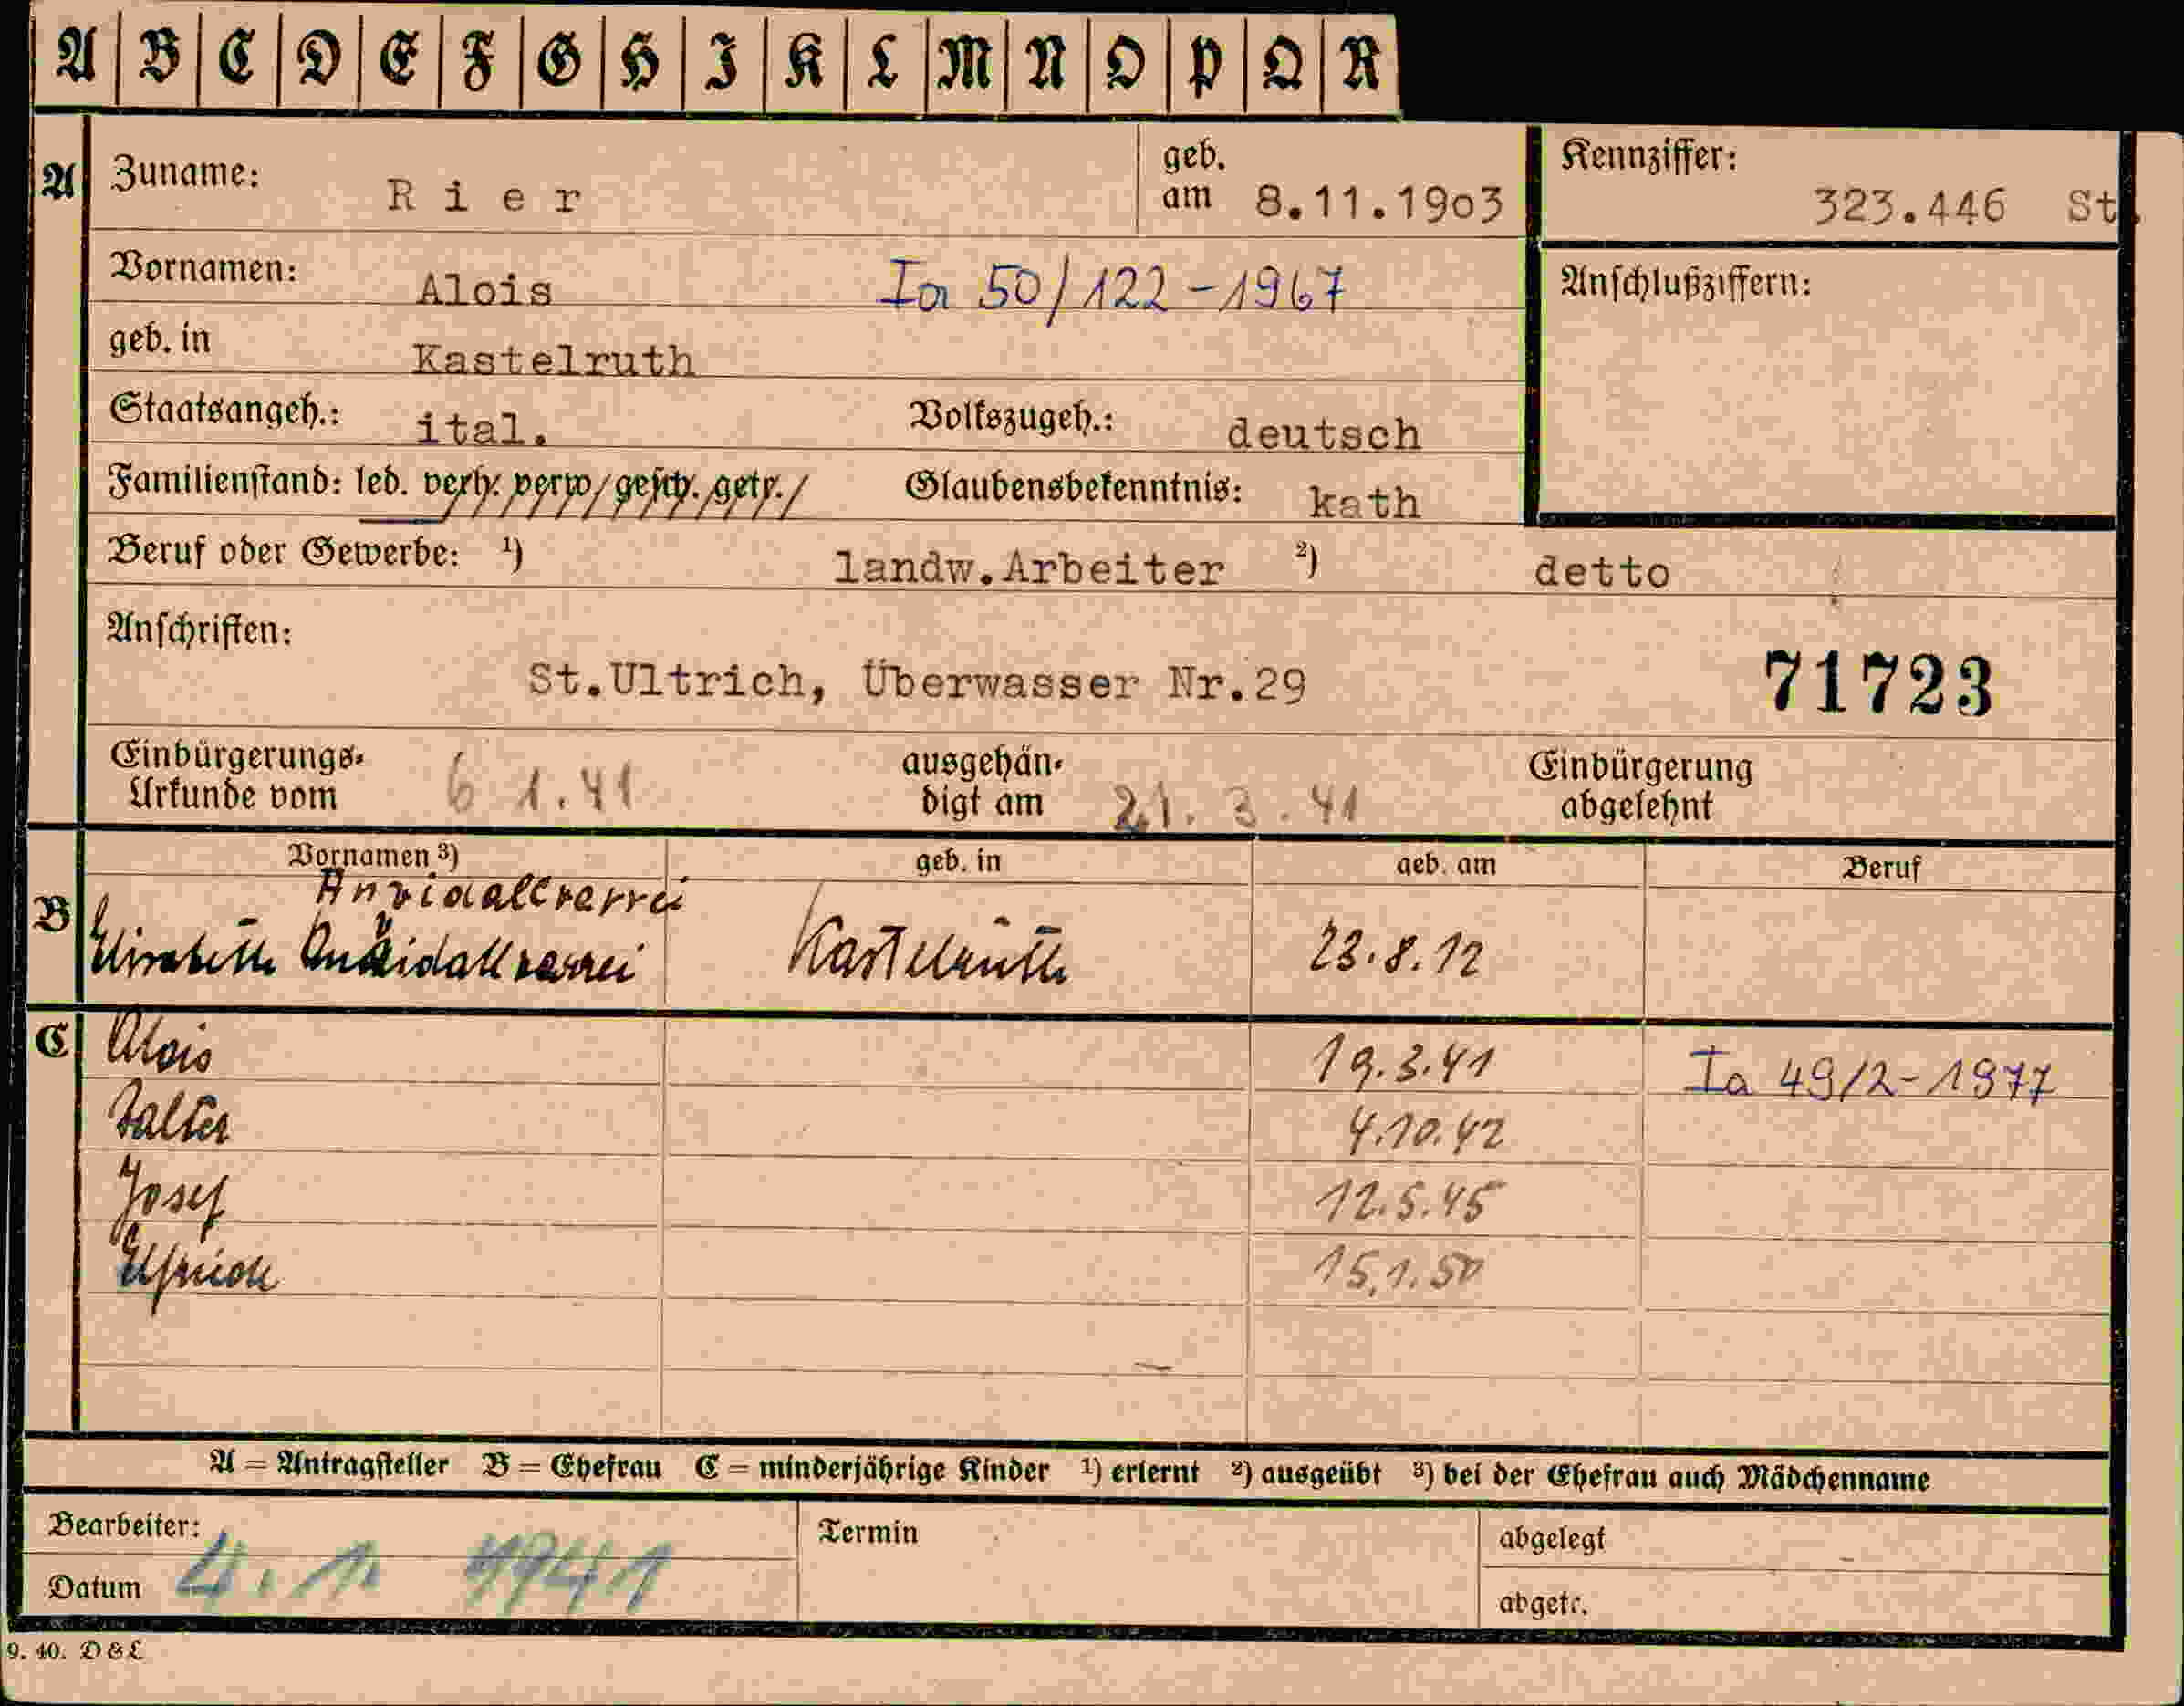 A B C D E F G H I K L M N O P Q R
A Zuname: Rier geb. am 8.11.1903 Kennziffer: 323.446 St.
Vornamen: Alois Ia 50/122-1967 Anschlußziffern:
geb. in Kastelruth
Staatsangeh.: ital. Volkszugeh.: deutsch
Familienstand: led. verh. verw. gesch. getr. Glaubensbekenntnis: kath
Beruf oder Gewerbe: ¹) landw.Arbeiter ²) detto
Anschriften:
St.Ultrich, Überwasser Nr.29 71723
Einbürgerungs-Urkunde vom 6 1.41 ausgehän-digt am 21. 3. 41 Einbürgerung abgelehnt
Vornamen ³) geb. in geb. am Beruf
B Elisabeth Kastelruth 23.8.12
C Alois 19.3.41 Ia 49/2-1977
4.10.42
Josef 12.5.45
Elfriede 15.1.50
A = Antragsteller B = Ehefrau C = minderjährige Kinder ¹) erlernt ²) ausgeübt ³) bei der Ehefrau auch Mädchenname
Bearbeiter: Termin abgelegt
Datum 4. 1. 1941 abgetr.
9. 40. D & L